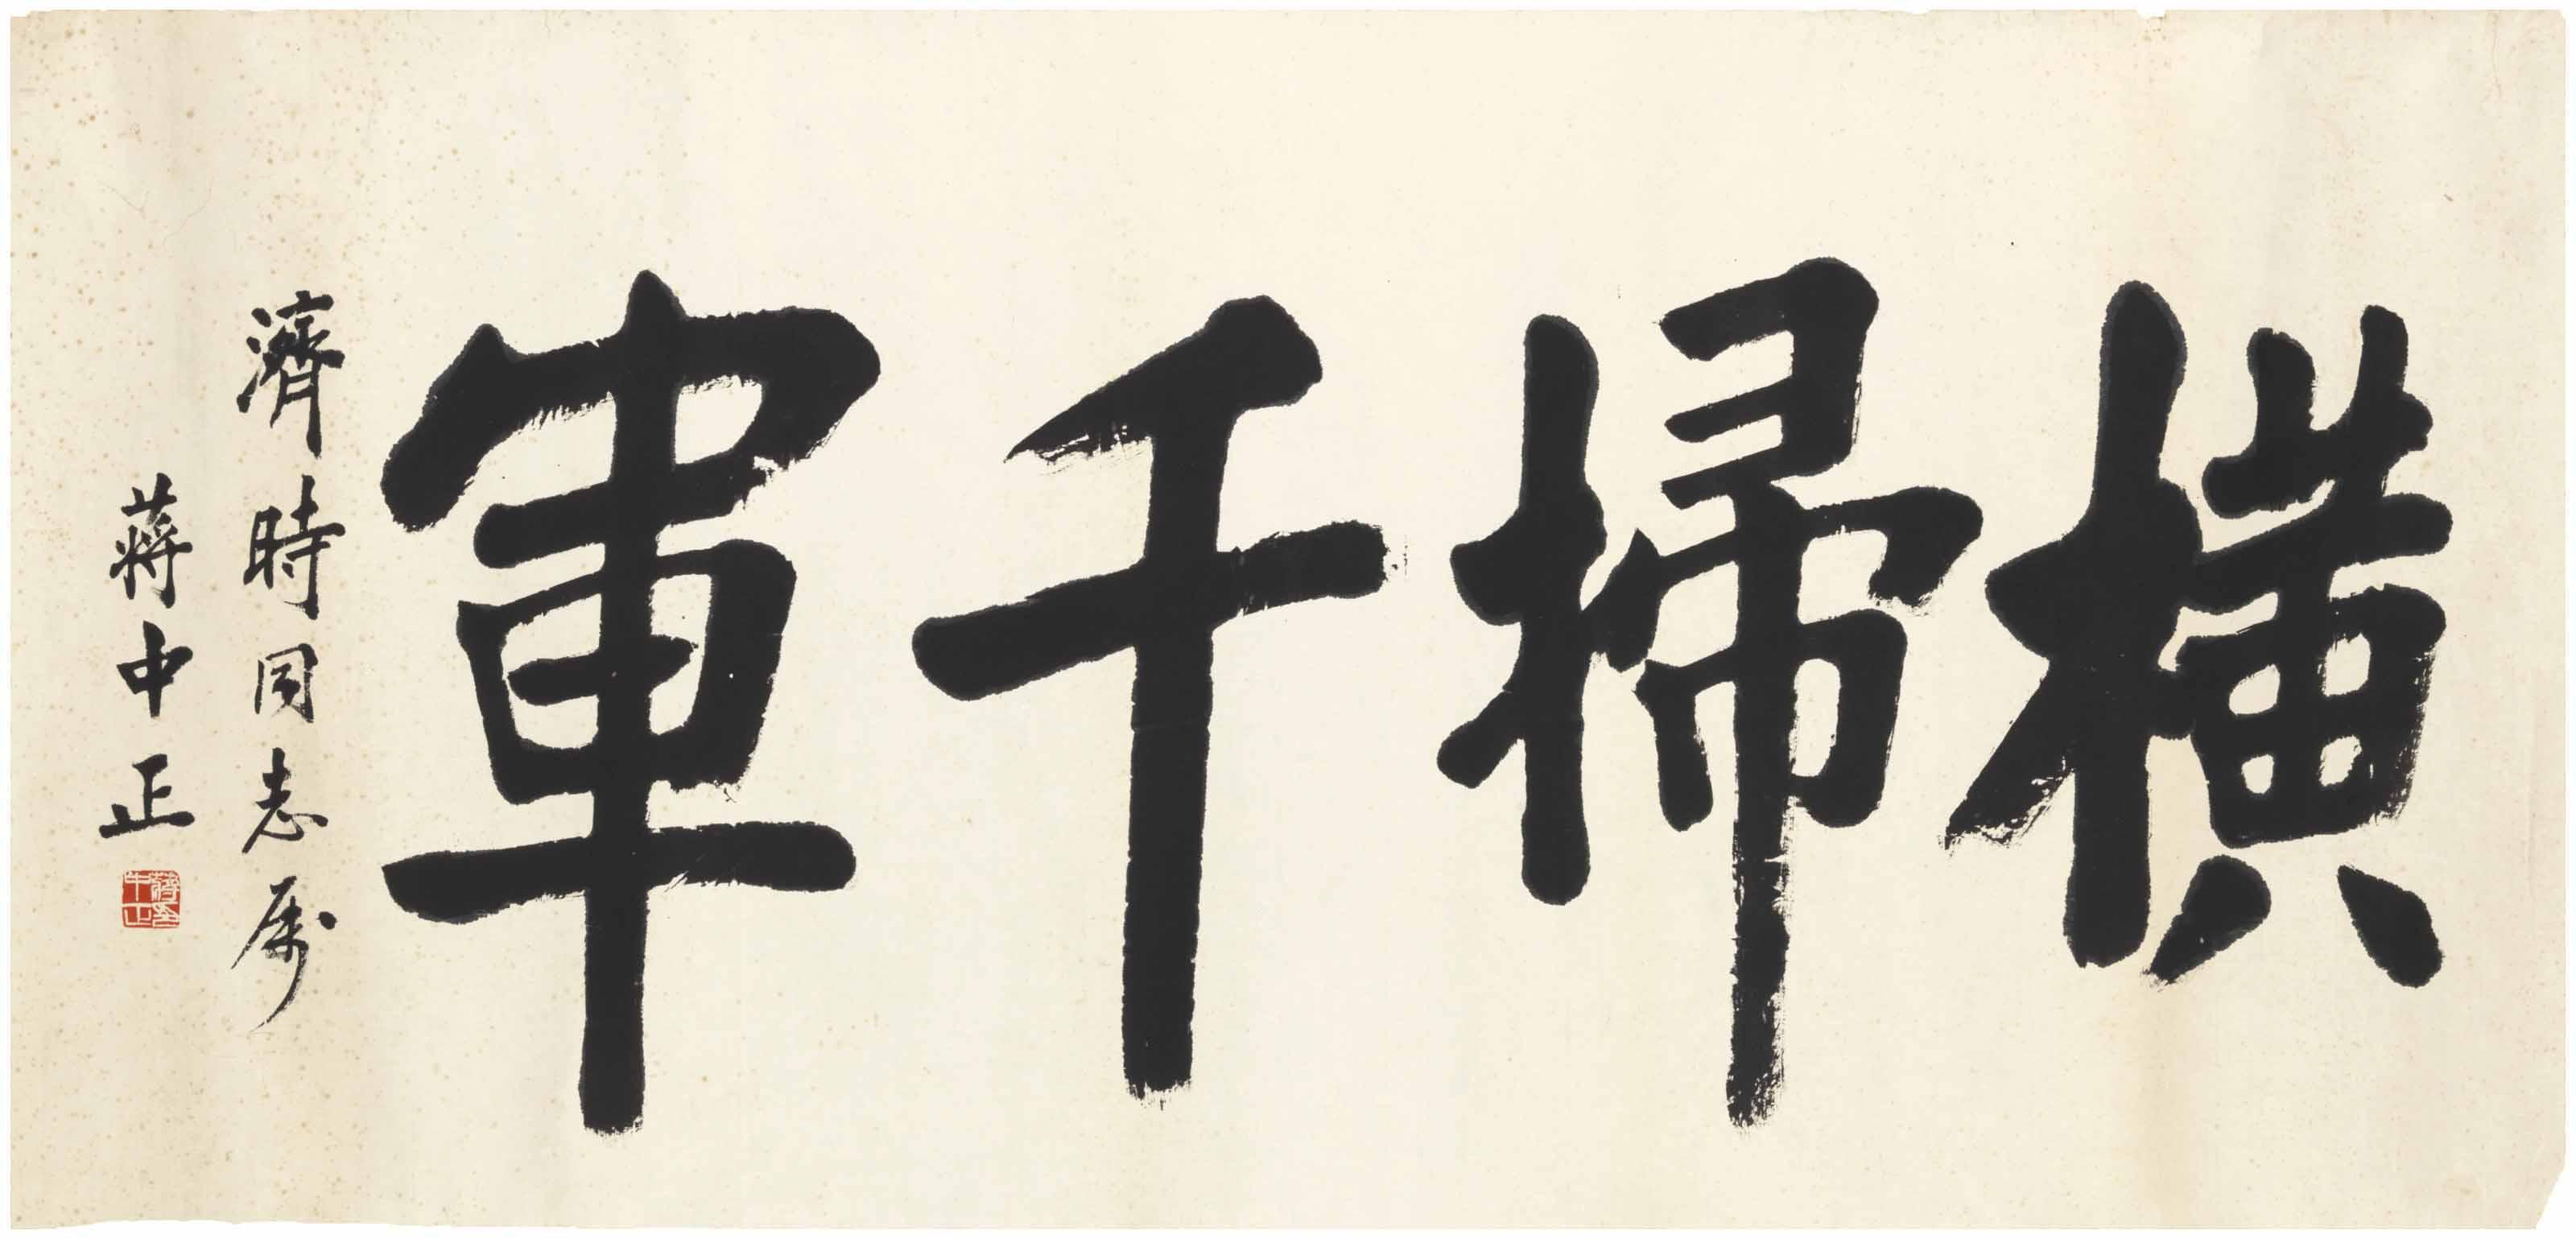 橫掃千軍
濟時同志属
蔣中正
蔣中正印